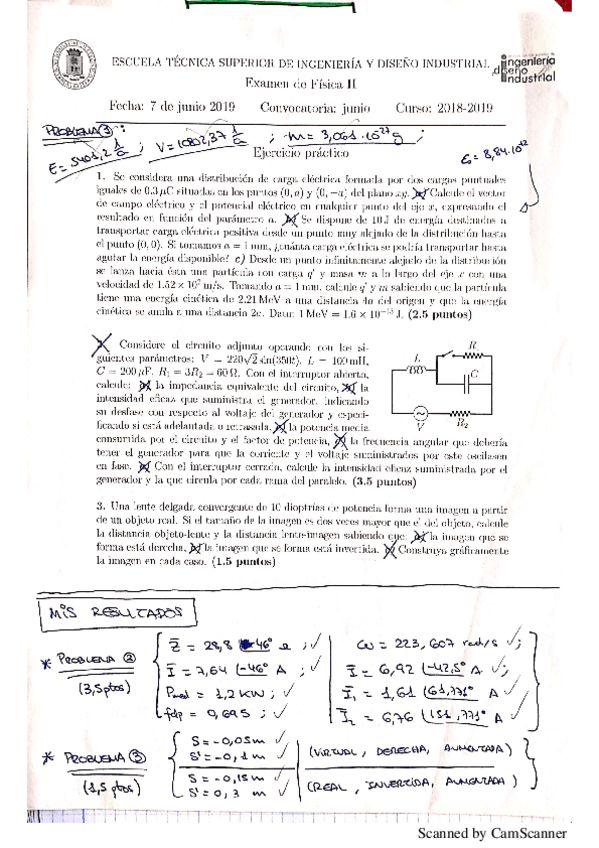 ESCUELA TÉCNICA SUPERIOR DE INGENIERÍA Y DISEÑO INDUSTRIAL
ingeniería
diseño
industrial
Examen de Física II
Fecha: 7 de junio 2019 Convocatoria: junio Curso: 2018-2019
PROBLEMA ③ :
; m = 3,061·10⁻²⁷ g ;
Ejercicio práctico
1. Se considera una distribución de carga eléctrica formada por dos cargas puntuales
iguales de 0.3 μC situadas en los puntos (0, a) y (0, −a) del plano xy. Calcule el vector
de campo eléctrico y el potencial eléctrico en cualquier punto del eje x, expresando el
resultado en función del parámetro a. Se dispone de 10 J de energía destinados a
transportar carga eléctrica positiva desde un punto muy alejado de la distribución hasta
el punto (0, 0). Si tomamos a = 1 mm, ¿cuánta carga eléctrica se podría transportar hasta
agotar la energía disponible? c) Desde un punto infinitamente alejado de la distribución
se lanza hacia ésta una partícula con carga q' y masa m a lo largo del eje x con una
velocidad de 1.52 × 10⁷ m/s. Tomando a = 1 mm, calcule q' y m sabiendo que la partícula
tiene una energía cinética de 2.21 MeV a una distancia 4a del origen y que la energía
cinética se anula a una distancia 2a. Dato: 1 MeV = 1.6 × 10⁻¹³ J. (2.5 puntos)
Considere el circuito adjunto operando con los si-
guientes parámetros: V = 220√2 sin(350t), L = 100 mH,
C = 200 μF, R₁ = 3R₂ = 60 Ω. Con el interruptor abierto,
calcule: la impedancia equivalente del circuito, la
intensidad eficaz que suministra el generador, indicando
su desfase con respecto al voltaje del generador y especi-
ficando si está adelantada o retrasada, la potencia media
consumida por el circuito y el factor de potencia, la frecuencia angular que debería
tener el generador para que la corriente y el voltaje suministrados por este oscilasen
en fase. Con el interruptor cerrado, calcule la intensidad eficaz suministrada por el
generador y la que circula por cada rama del paralelo. (3.5 puntos)
L
R₁
C
V
R₂
3. Una lente delgada convergente de 10 dioptrías de potencia forma una imagen a partir
de un objeto real. Si el tamaño de la imagen es dos veces mayor que el del objeto, calcule
la distancia objeto-lente y la distancia lente-imagen sabiendo que: la imagen que se
forma está derecha, la imagen que se forma está invertida. Construya gráficamente
la imagen en cada caso. (1.5 puntos)
MIS RESULTADOS
* PROBLEMA ②
(3,5 ptos)
Z̄ = 28,8 |46° Ω ; ✓
Ī = 7,64 |-46° A ; ✓
= 1,2 KW ; ✓
fdp = 0,695 ; ✓
ω = 223,607 rad/s ✓;
Ī = 6,92 |-42,5° A ✓;
Ī₁ = 1,61 |61,771° A ✓
Ī₂ = 6,76 |151,771° A ✓
* PROBLEMA ③
(1,5 ptos)
S = -0,05 m ✓
S' = -0,1 m ✓
(VIRTUAL, DERECHA, AUMENTADA)
S = -0,15 m ✓
S' = 0,3 m ✓
(REAL, INVERTIDA, AUMENTADA)
Scanned by CamScanner